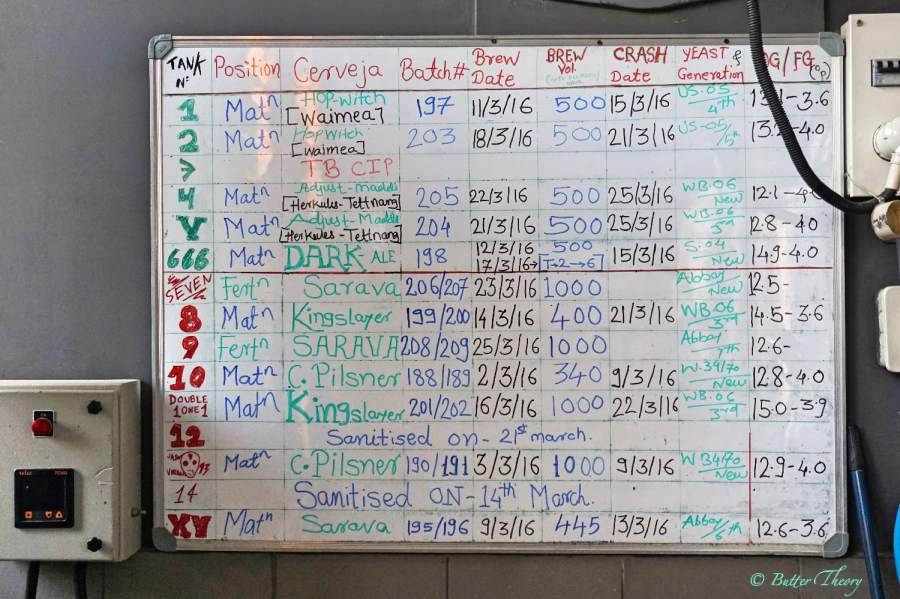 TANK Nº Position Cerveja Batch# Brew Date BREW Vol. CRASH Date YEAST & Generation OG/FG (°P)
1 Matⁿ HOP-WITCH [Waimea] 197 11/3/16 500 15/3/16 US-05 4th 3.6
2 Matⁿ HOPWITCH [Waimea] 203 18/3/16 500 21/3/16 US-05/5th 4.0
TB CIP
4 Matⁿ Adjust-Maddi [Herkules-Tettnang] 205 22/3/16 500 25/3/16 WB.06 New 12.1-
V Matⁿ Adjust-Maddi [Herkules-Tettnang] 204 21/3/16 500 25/3/16 WB.06 3rd 12.8-4.0
666 Matⁿ DARK-ALE 198 12/3/16 17/3/16→ 500 [T→2→6] 15/3/16 S.04 New 14.9-4.0
SEVEN Fertⁿ Sarava 206/207 23/3/16 1000 Abbay New 12.5-
8 Matⁿ Kingslayer 199/200 14/3/16 400 21/3/16 WB.06 3rd 14.5-3.6
9 Fertⁿ SARAVA 208/209 25/3/16 1000 Abbay 7th 12.6-
10 Matⁿ C.Pilsner 188/189 2/3/16 340 9/3/16 W.34/70 New 12.8-4.0
DOUBLE 1ONE1 Matⁿ Kingslayer 201/202 16/3/16 1000 22/3/16 WB.06 3rd 15.0-3.9
12 Sanitised on- 21st march.
Matⁿ C.Pilsner 190/191 3/3/16 1000 9/3/16 WB4/70 New 12.9-4.0
14 Sanitised ON-14th March.
XV Matⁿ Sarava 195/196 9/3/16 445 13/3/16 Abbay/6th 12.6-3.6
© Butter Theory